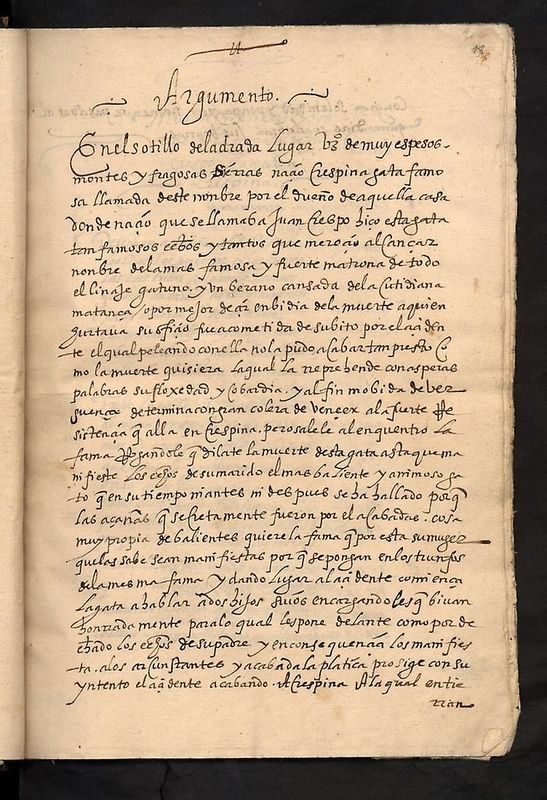 Argumento.
En el sotillo de la adrada Lugar de muy espesos
montes y fragosas sierras naçio Crespina gata famo
sa llamada deste nonbre por el dueño de aquella casa
donde naçio que se llamaba Juan Crespo hiço esta gata
tan famosos echos y tantos que mereçio alCançar
nonbre de la mas famosa y fuerte matrona de todo
el linaje gatuno. y Vn berano cansada de la Cutidiana
matança, o por mejor deçir enbidia de la muerte a quien
hurtava su ofiçio fue acometida de subito por el açiden
te el qual peleando con ella no la pudo acabar tan presto Co
mo la muerte quisiera la qual la rreprehende con asperas
palabras su floxedad y Cobardia. y al fin mobida de ver
guença determina con gran colera de vencer la fuerte Re
sistençia q alla en Crespina. pero salele al enquentro la
fama Rogandole q dilate la muerte desta gata asta que ma
nifieste los echos de su marido el mas baliente y animoso ga
to q en su tiempo ni antes ni despues se ha hallado porq
las açañas q secretamente fueron por el acabadas. cosa
muy propia de balientes quiere la fama q por esta su muger
que las sabe sean manifiestas por q se pongan en los triunfos
de la mesma fama y dando lugar al açidente comiença
la gata a hablar a dos hijos suios encargandoles q biuan
honrradamente para lo qual les pone delante como por de
chado los echos de su padre y en consequençia los manifies
ta. a los çircunstantes y acabada la platica prosige con su
yntento el açidente acabando. A Crespina A la qual entie
rran